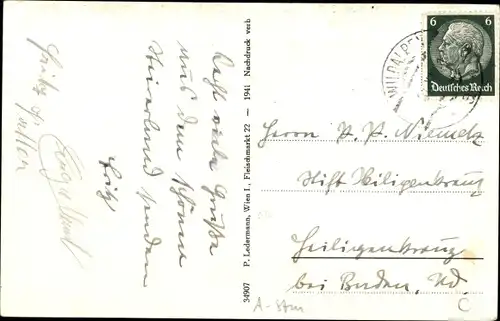 Recht viele Grüße
aus dem schönen
Steierland senden
Fritz
34907 P. Ledermann, Wien I., Fleischmarkt 22 — 1941 Nachdruck verb
WILDALPEN
6 6
Deutsches Reich
Herrn P. P. Niemetz
Stift Heiligenkreuz
Heiligenkreuz
bei Baden, Nd.
C